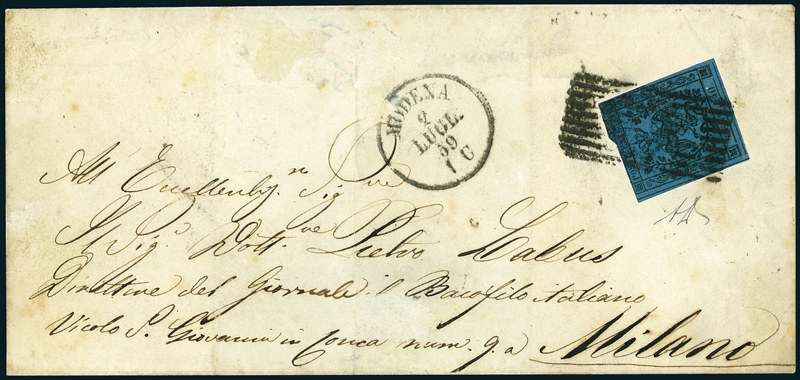 MODENA
2
LUGL.
59
1 C
All' Eccellentis.mo Sig.re
Il Sig.r Dott.re Pietro Labus
Direttore del Giornale il Bacofilo italiano
Vicolo S. Giovanni in Conca num. 9. a Milano